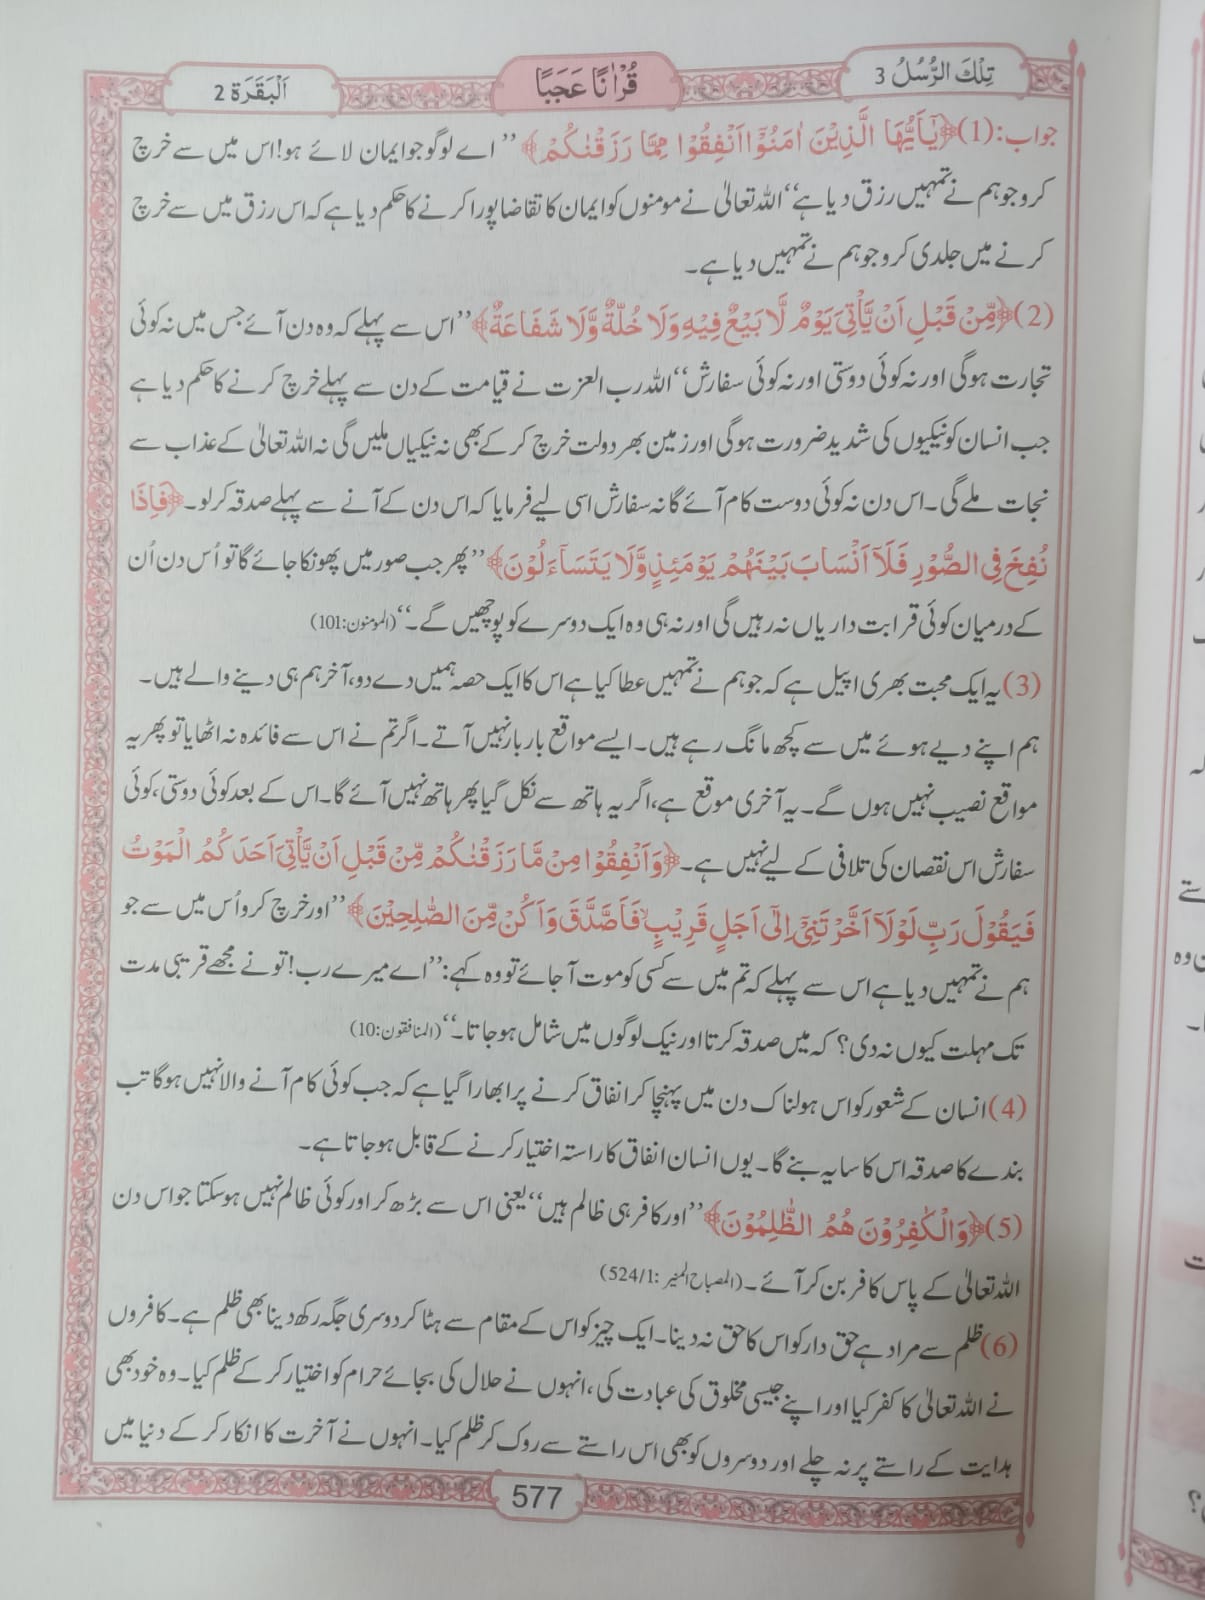 تِلْكَ الرُّسُلُ 3
قُرْاٰنًا عَجَبًا
اَلْبَقَرَة 2
جواب:(1)﴿يٰٓاَيُّهَا الَّذِيْنَ اٰمَنُوْٓا اَنْفِقُوْا مِمَّا رَزَقْنٰكُمْ﴾ ’’اے لوگو جو ایمان لائے ہو!اس میں سے خرچ
کرو جو ہم نے تمہیں رزق دیا ہے‘‘ اللہ تعالیٰ نے مومنوں کو ایمان کا تقاضا پورا کرنے کا حکم دیا ہے کہ اس رزق میں سے خرچ
کرنے میں جلدی کرو جو ہم نے تمہیں دیا ہے۔
(2)﴿مِّنْ قَبْلِ اَنْ يَّاْتِيَ يَوْمٌ لَّا بَيْعٌ فِيْهِ وَلَا خُلَّةٌ وَّلَا شَفَاعَةٌ﴾ ’’اس سے پہلے کہ وہ دن آئے جس میں نہ کوئی
تجارت ہوگی اور نہ کوئی دوستی اور نہ کوئی سفارش‘‘ اللہ رب العزت نے قیامت کے دن سے پہلے خرچ کرنے کا حکم دیا ہے
جب انسان کو نیکیوں کی شدید ضرورت ہوگی اور زمین بھر دولت خرچ کر کے بھی نہ نیکیاں ملیں گی نہ اللہ تعالیٰ کے عذاب سے
نجات ملے گی۔ اس دن نہ کوئی دوست کام آئے گا نہ سفارش اسی لیے فرمایا کہ اس دن کے آنے سے پہلے صدقہ کر لو۔ ﴿فَاِذَا
نُفِخَ فِي الصُّوْرِ فَلَآ اَنْسَابَ بَيْنَهُمْ يَوْمَئِذٍ وَّلَا يَتَسَآءَلُوْنَ﴾ ’’پھر جب صور میں پھونکا جائے گا تو اُس دن اُن
کے درمیان کوئی قرابت داریاں نہ رہیں گی اور نہ ہی وہ ایک دوسرے کو پوچھیں گے۔‘‘ (المومنون:101)
(3) یہ ایک محبت بھری اپیل ہے کہ جو ہم نے تمہیں عطا کیا ہے اس کا ایک حصہ ہمیں دے دو، آخر ہم ہی دینے والے ہیں۔
ہم اپنے دیے ہوئے میں سے کچھ مانگ رہے ہیں۔ ایسے مواقع بار بار نہیں آتے۔ اگر تم نے اس سے فائدہ نہ اٹھایا تو پھر یہ
مواقع نصیب نہیں ہوں گے۔ یہ آخری موقع ہے، اگر یہ ہاتھ سے نکل گیا پھر ہاتھ نہیں آئے گا۔ اس کے بعد کوئی دوستی، کوئی
سفارش اس نقصان کی تلافی کے لیے نہیں ہے۔ ﴿وَاَنْفِقُوْا مِنْ مَّا رَزَقْنٰكُمْ مِّنْ قَبْلِ اَنْ يَّاْتِيَ اَحَدَكُمُ الْمَوْتُ
فَيَقُوْلَ رَبِّ لَوْلَآ اَخَّرْتَنِيْٓ اِلٰٓى اَجَلٍ قَرِيْبٍ فَاَصَّدَّقَ وَاَكُنْ مِّنَ الصّٰلِحِيْنَ﴾ ’’اور خرچ کرو اُس میں سے جو
ہم نے تمہیں دیا ہے اس سے پہلے کہ تم میں سے کسی کو موت آ جائے تو وہ کہے: ’’اے میرے رب! تو نے مجھے قریبی مدت
تک مہلت کیوں نہ دی؟ کہ میں صدقہ کرتا اور نیک لوگوں میں شامل ہو جاتا۔‘‘ (المنافقون:10)
(4) انسان کے شعور کو اس ہولناک دن میں پہنچا کر انفاق کرنے پر ابھارا گیا ہے کہ جب کوئی کام آنے والا نہیں ہوگا تب
بندے کا صدقہ اس کا سایہ بنے گا۔ یوں انسان انفاق کا راستہ اختیار کرنے کے قابل ہو جاتا ہے۔
(5)﴿وَالْكٰفِرُوْنَ هُمُ الظّٰلِمُوْنَ﴾ ’’اور کافر ہی ظالم ہیں‘‘ یعنی اس سے بڑھ کر اور کوئی ظالم نہیں ہو سکتا جو اس دن
اللہ تعالیٰ کے پاس کافر بن کر آئے۔ (المصباح المنیر:524/1)
(6) ظلم سے مراد ہے حق دار کو اس کا حق نہ دینا۔ ایک چیز کو اس کے مقام سے ہٹا کر دوسری جگہ رکھ دینا بھی ظلم ہے۔ کافروں
نے اللہ تعالیٰ کا کفر کیا اور اپنے جیسی مخلوق کی عبادت کی، انہوں نے حلال کی بجائے حرام کو اختیار کر کے ظلم کیا۔ وہ خود بھی
ہدایت کے راستے پر نہ چلے اور دوسروں کو بھی اس راستے سے روک کر ظلم کیا۔ انہوں نے آخرت کا انکار کر کے دنیا میں
577